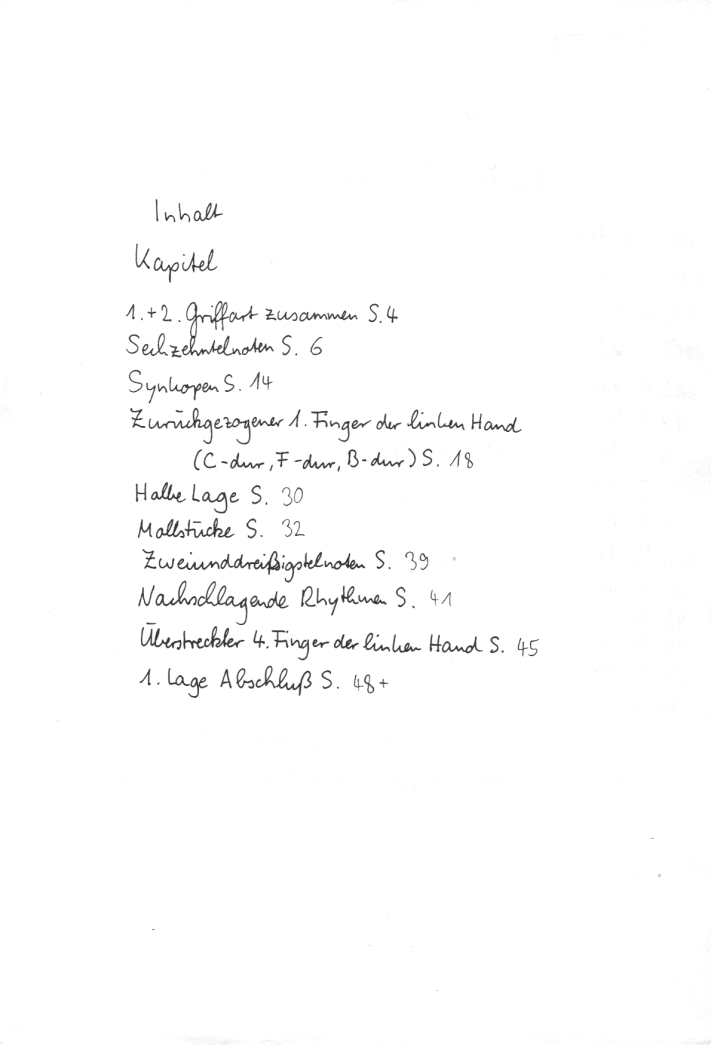 Inhalt
Kapitel
1.+2. Griffart zusammen S.4
Sechzehntelnoten S. 6
Synkopen S. 14
Zurückgezogener 1. Finger der linken Hand
(C-dur, F-dur, B-dur) S. 18
Halbe Lage S. 30
Mollstücke S. 32
Zweiunddreißigstelnoten S. 39
Nachschlagende Rhythmen S. 41
Überstreckter 4. Finger der linken Hand S. 45
1. Lage Abschluß S. 48+